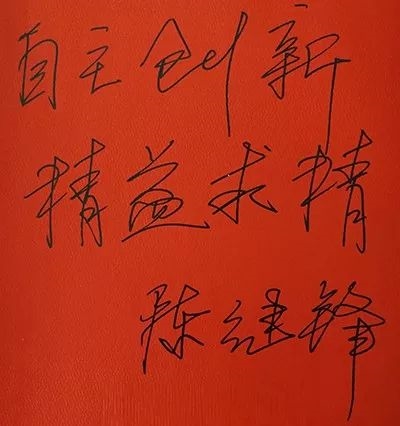 自主创新
精益求精
陈继锋